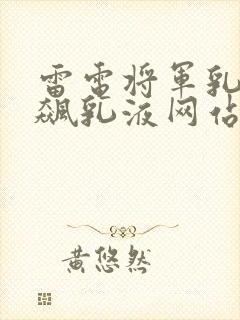 雷电将军乳
飙乳液网站
黄悠然